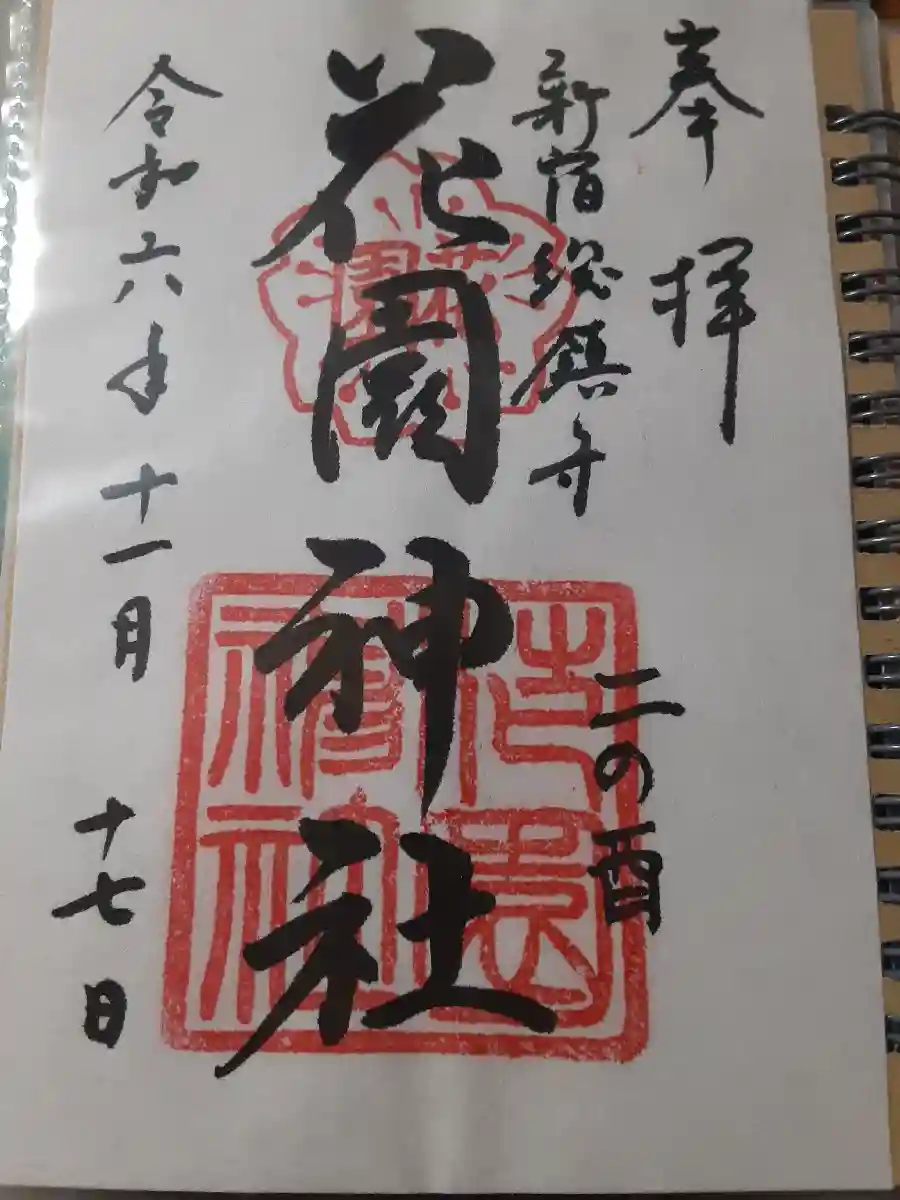 奉拝
新宿総鎮守
二の酉
花園神社
花園
花園神社
令和六年十一月十七日